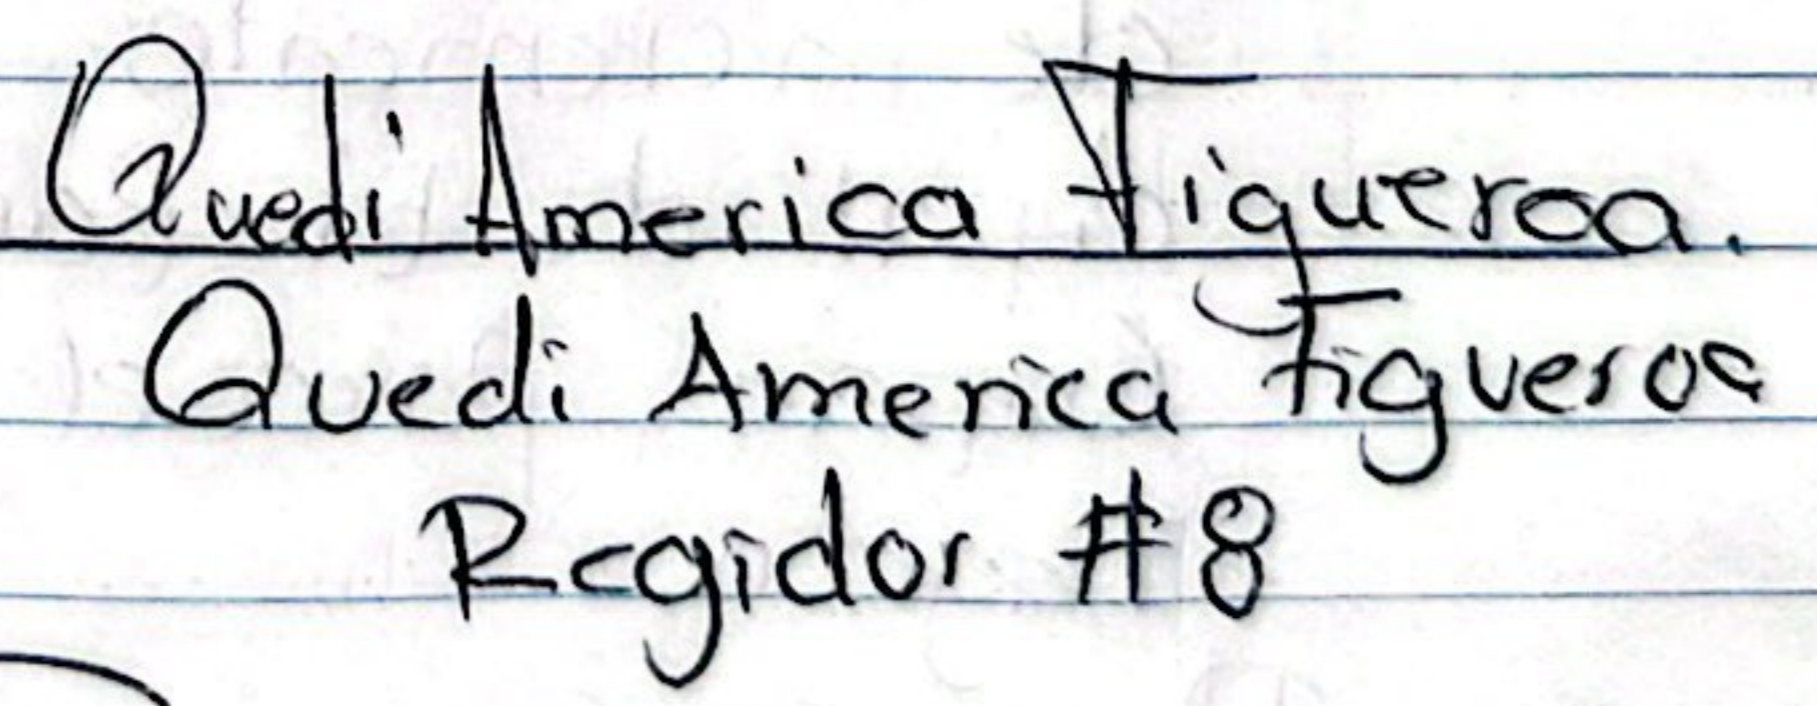 Quedi America Figueroa.
Quedi America Figueroa
Regidor #8